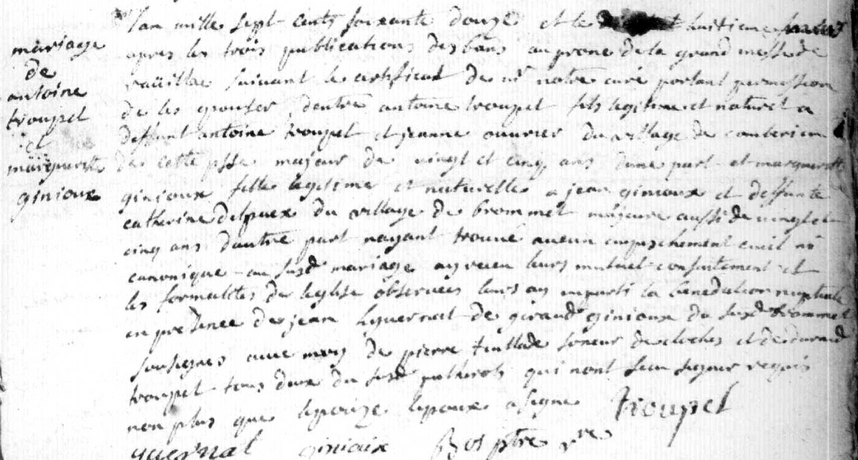 mariage
de
antoine
troupel
et
marguerite
ginioux
L'an mille sept cents soixante douze et le huitieme
apres les trois publications des bans au prone de la grand messe de
suivant le certificat de mr notre curé portant permission
de les epouser dentre antoine troupel fils legitime et naturel a
deffunt antoine troupel et jeanne ouvrier du village de
de cette psse majeur de vingt et cinq ans d'une part et marguerite
ginioux fille legitime et naturelle a jean ginioux et deffunte
catherine delpuex du village de brommet majeure aussi de vingt et
cinq ans d'autre part nayant trouvé aucun empechement civil ni
canonique au susd mariage ay receu leurs mutuel consentement et
les formalites de leglise observees leurs ay imparti la benediction nuptiale
en presence de jean de giraud ginioux du susd brommet
soussignes avec moy de pierre soneur de cloches et de durand
troupel tous deux du susd qui nont seu signer requis
non plus que lepouze lepoux a signe troupel
ginioux Bos ptre vre